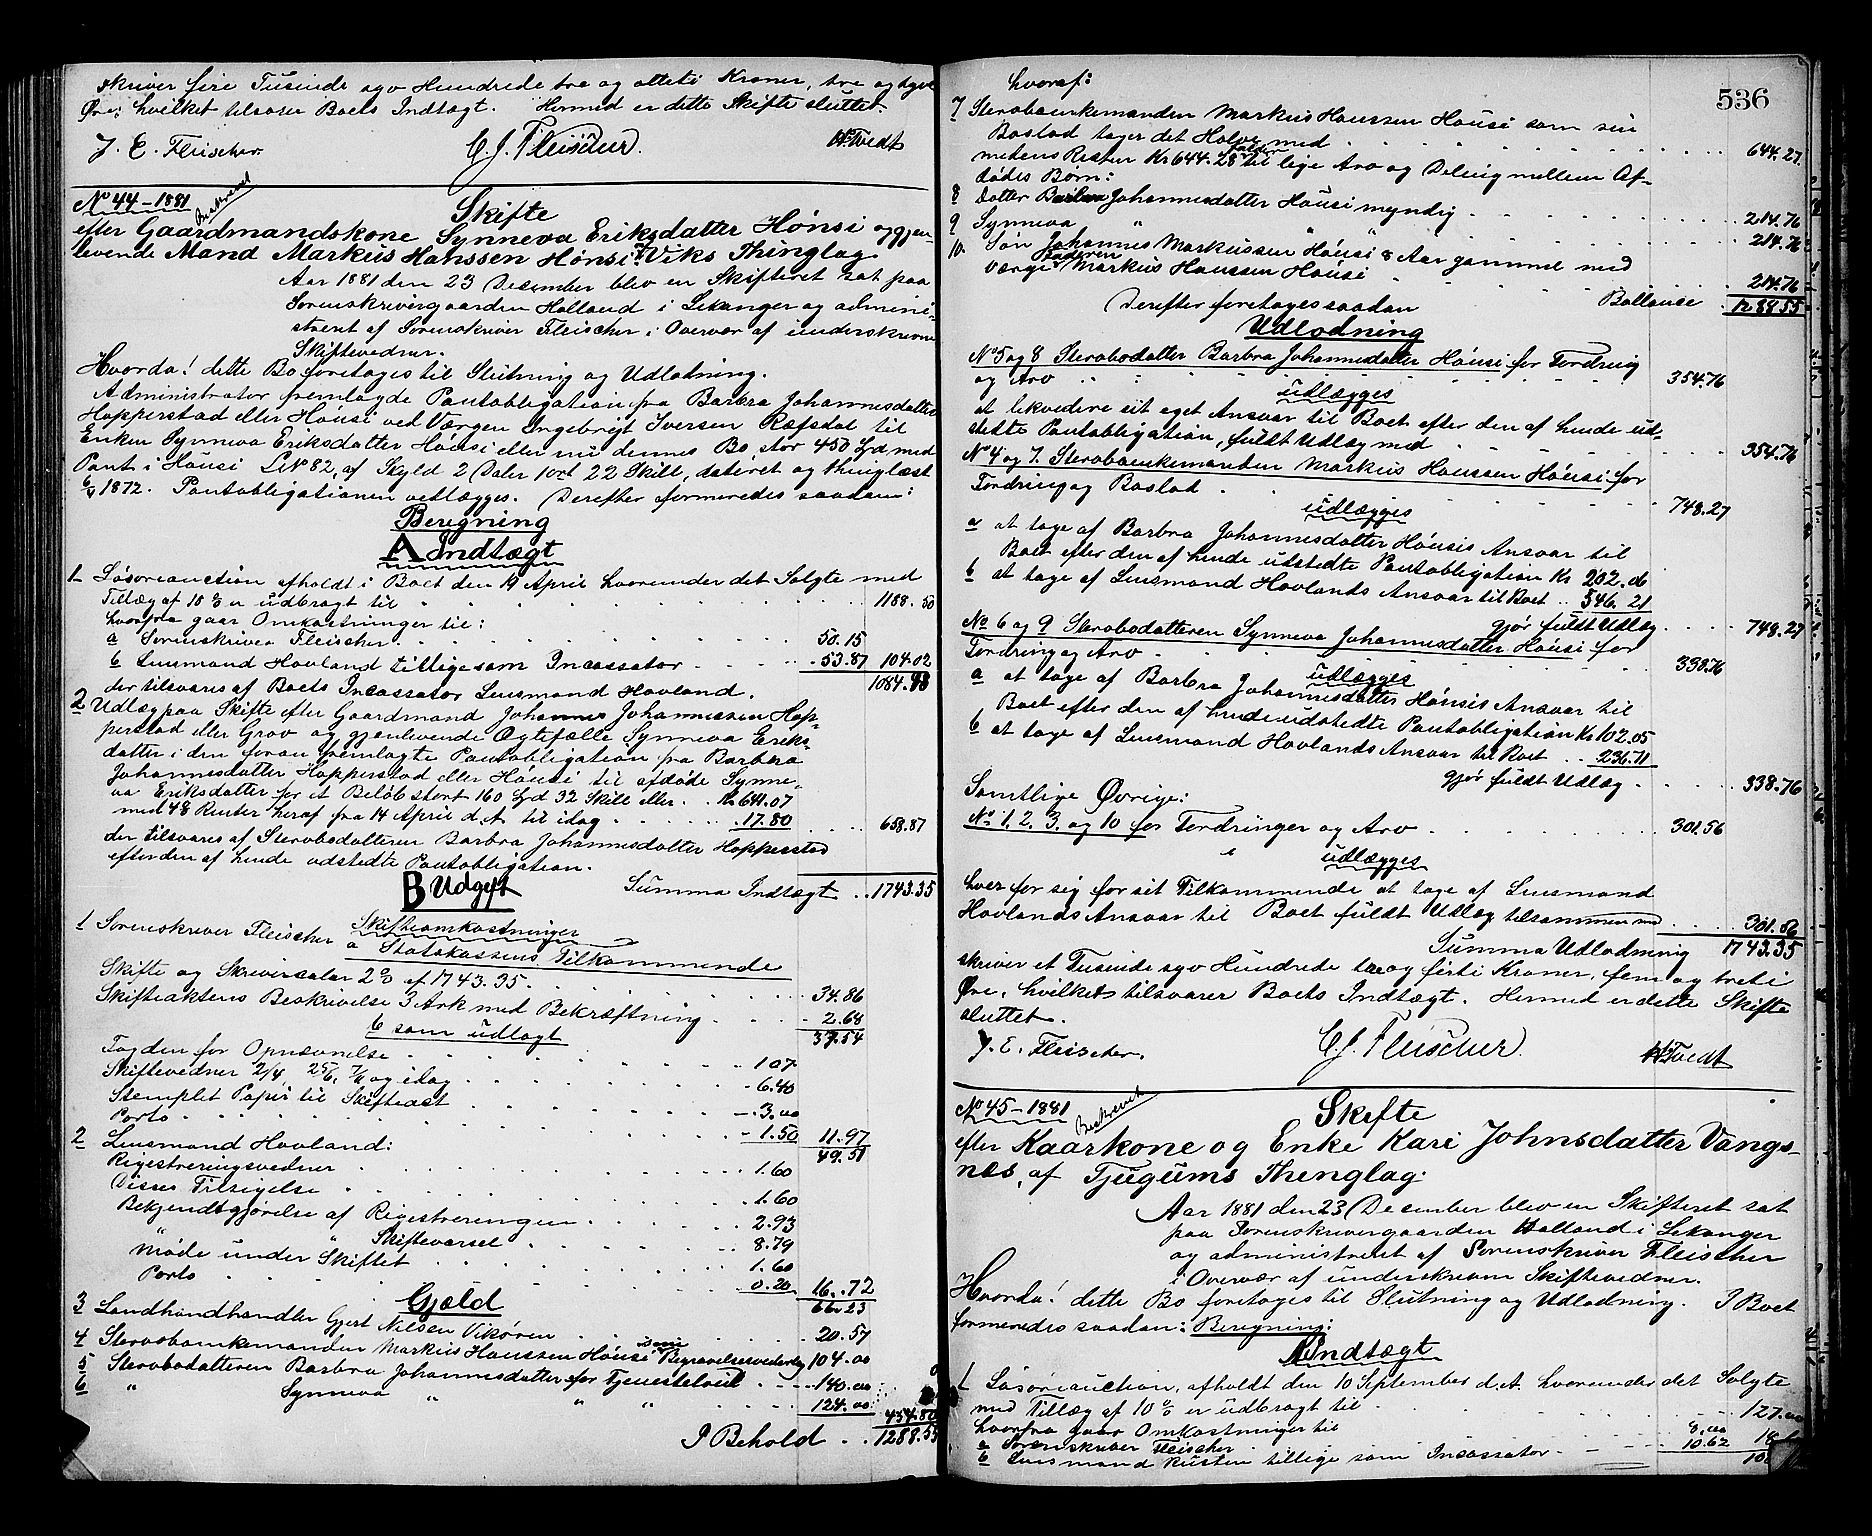 skriver fire Tusinde syv Hundrede tre og otteti Kroner, tre og tyve
Øre: hvilket tilsvarer Boets Indtægt. Hermed er dette Skifte sluttet.
J. E. Fleischer. C. J. Fleischer. W. Tvedt
No 44 - 1881 Beskrevet
Skifte
efter Gaardmandskone Synneva Eriksdatter Hønsi og gjen-
levende Mand Markus Hanssen Hønsi, Viks Thinglag.
Aar 1881 den 23 December blev en Skifteret sat paa
Sorenskrivergaarden Holland i Lekanger og admini-
streret af Sorenskriver Fleischer i Overvær af underskrevne
Skiftevedner.
Hvorda! dette Bo foretoges til Slutning og Udlodning.
Administrator fremlagde Pantobligation fra Barbra Johannesdatter
Hopperstad eller Hønsi ved Værgen Engebregt Iversen Refsdal til
Enken Synneva Eriksdatter Hønsi eller nu dennes Bo, stor 450 Spd med
Pant i Hønsi LNo 82, af Skyld 2 Daler 1 ort 22 Skill, dateret og thinglæst
1872. Pantobligationen vedlægges. Derefter formeredes saadan:
Beregning
A Indtægt
1 Løsøreauction afholdt i Boet den 19 April hvorunder det Solgte med
Tillæg af 10 % er udbragt til 1188. 50
hvorfra gaar Omkostninger til:
a Sorenskriver Fleischer 50.15
b Lensmand Hovland tilligesom Incassator 53.87 104.02
der tilsvares af Boets Incassator Lensmand Hovland. 1084.48
2 Udlæg paa Skifte efter Gaardmand Johannes Johannessen Hop-
perstad eller Grov og gjenlevende Ægtefælle Synneva Eriks-
datter i den foran fremlagte Pantobligation fra Barbra
Johannesdatter Hopperstad eller Hønsi til afdøde Synne-
va Eriksdatter for et Beløb stort 160 Spd 32 Skill eller Kr 641.07
med 4% Renter heraf fra 14 April d.A. til idag 17.80 658.87
der tilsvares af Sterbodatteren Barbra Johannesdatter Hopperstad
efter den af hende udstedte Pantobligation.
Summa Indtægt 1743.35
B Udgift
Skifteomkostninger
1 Sorenskriver Fleischer
a Statskassens Tilkommende
Skifte og Skriversalær 2 % af 1743.35. 34.86
Skifteaktens Beskrivelse 3 Ark med Bekræftning 2.68
b som udlagt 37.54
Fogden for Opnævnelse 1.07
Skiftevedner 2/4 25/6, 7/ og idag 6.40
Stemplet Papir til Skifteact 3.00
Porto 1.50 11.97
2 Lensmand Hovland: 49.51
Registreringsvedner 1.60
Disses Tilsigelse 1.60
Bekjendtgjørelse af Registreringen 2.93
" " Skiftevarsel 8.79
Møde under Skiftet 1.60
Porto 0.20 16.72
66.23
Gjæld
3 Landhandhandler Gjert Nilsen Vikøren 20.57
4 Sterboenkemanden Markus Hanssen Hønsi Begravelsesvederlag 104.00
5 Sterbodatteren Barbra Johannesdatter for Tjenesteløn 140.00
6 " Synneva " " " 124.00 454.80
I Behold 1288.55
536
hvoraf:
7 Sterboenkemanden Markus Hanssen Hønsi som sin
Boslod tager det Halve med 644.27.
medens Resten Kr 644.28 falder til lige Arv og Deling mellem Af-
dødes Børn:
8 Datter Barbra Johannesdatter Hønsi myndig 214.76
9 Synneva " " " 214.76
10. Søn Johannes Markussen Hønsi 8 Aar gammel med
Værge Faderen Markus Hanssen Hønsi 214.76
Derefter foretoges saadan Ballance 1288.55
Udlodning
No 5 og 8 Sterbodatter Barbra Johannesdatter Hønsi for Fordring
og Arv 354.76
udlægges
at likvedere sit eget Ansvar til Boet efter den af hende ud-
stedte Pantobligation, fuldt Udlæg med 354.76
No 4 og 7. Sterboenkemanden Markus Hanssen Hønsi for
Fordring og Boslod 748.27
udlægges
a at tage af Barbra Johannesdatter Hønsis Ansvar til
Boet efter den af hende udstedte Pantobligation Kr 202.06
b at tage af Lensmand Hovlands Ansvar til Boet 546.21
gjør fuldt Udlæg 748.27
No 6 og 9 Sterbodatteren Synneva Johannesdatter Hønsi for
Fordring og Arv 338.76
udlægges
a at tage af Barbra Johannesdatter Hønsis Ansvar til
Boet efter den af hende udstedte Pantobligation Kr 102.05
b at tage af Lensmand Hovlands Ansvar til Boet 236.71
gjør fuldt Udlæg 338.76
Samtlige Øvrige:
No 1. 2. 3. og 10 for Fordringer og Arv 301.56
udlægges
hver for sig for sit Tilkommende at tage af Lensmand
Hovlands Ansvar til Boet fuldt Udlæg tilsammen med 301.56
Summa Udlodning 1743.35
skriver et Tusinde syv Hundrede tre og førti Kroner, fem og treti
Øre, hvilket tilsvarer Boets Indtægt. Hermed er dette Skifte
sluttet.
J. E. Fleischer. C. J. Fleischer. W. Tvedt
No 45 - 1881 Beskrevet
Skifte
efter Kaarkone og Enke Kari Johnsdatter Vangs-
nes, af Tjugums Thenglag:
Aar 1881 den 23 December blev en Skifteret sat
paa Sorenskrivergaarden Holland i Lekanger
og administreret af Sorenskriver Fleischer
i Overvær af underskrevne Skiftevedner.
Hvorda! dette Bo foretoges til Slutning og Udlodning. I Boet
formeredes saadan: Beregning:
A Indtægt
1 Løsøreauction, afholdt den 10 September d.A. hvorunder det Solgte
med Tillæg af 10 % er udbragt til 127.00
hvorfra gaar Omkostninger til
a Sorenskriver Fleischer 8.00
b Lensmand Husten tillige som Incassator 10.62